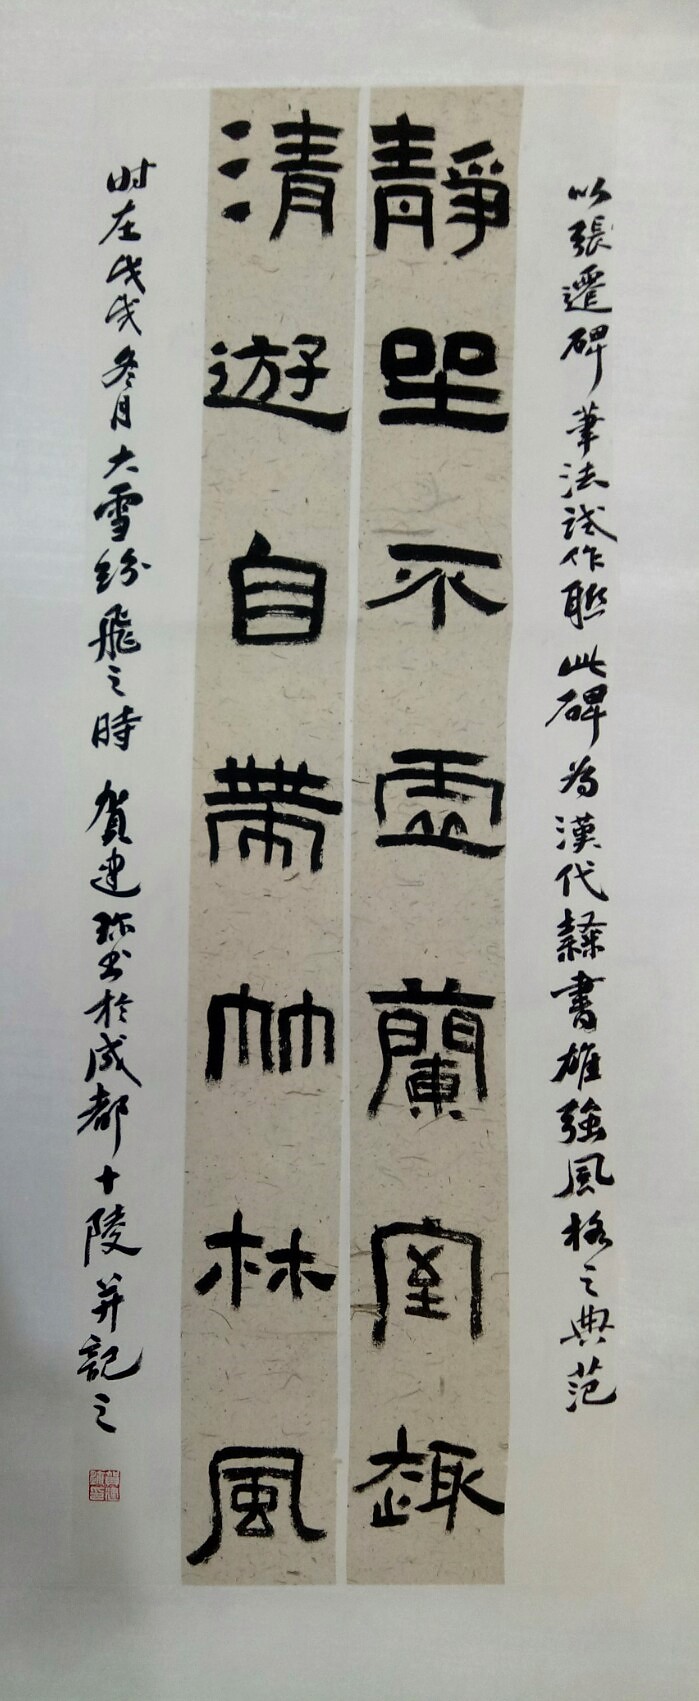 以張遷碑筆法試作聯此碑為漢代隸書雄強風格之典范
靜坐不虛蘭室趣
清遊自帶竹林風
时在戊戌冬月大雪紛飛之時賀建珎书於成都十陵并記之